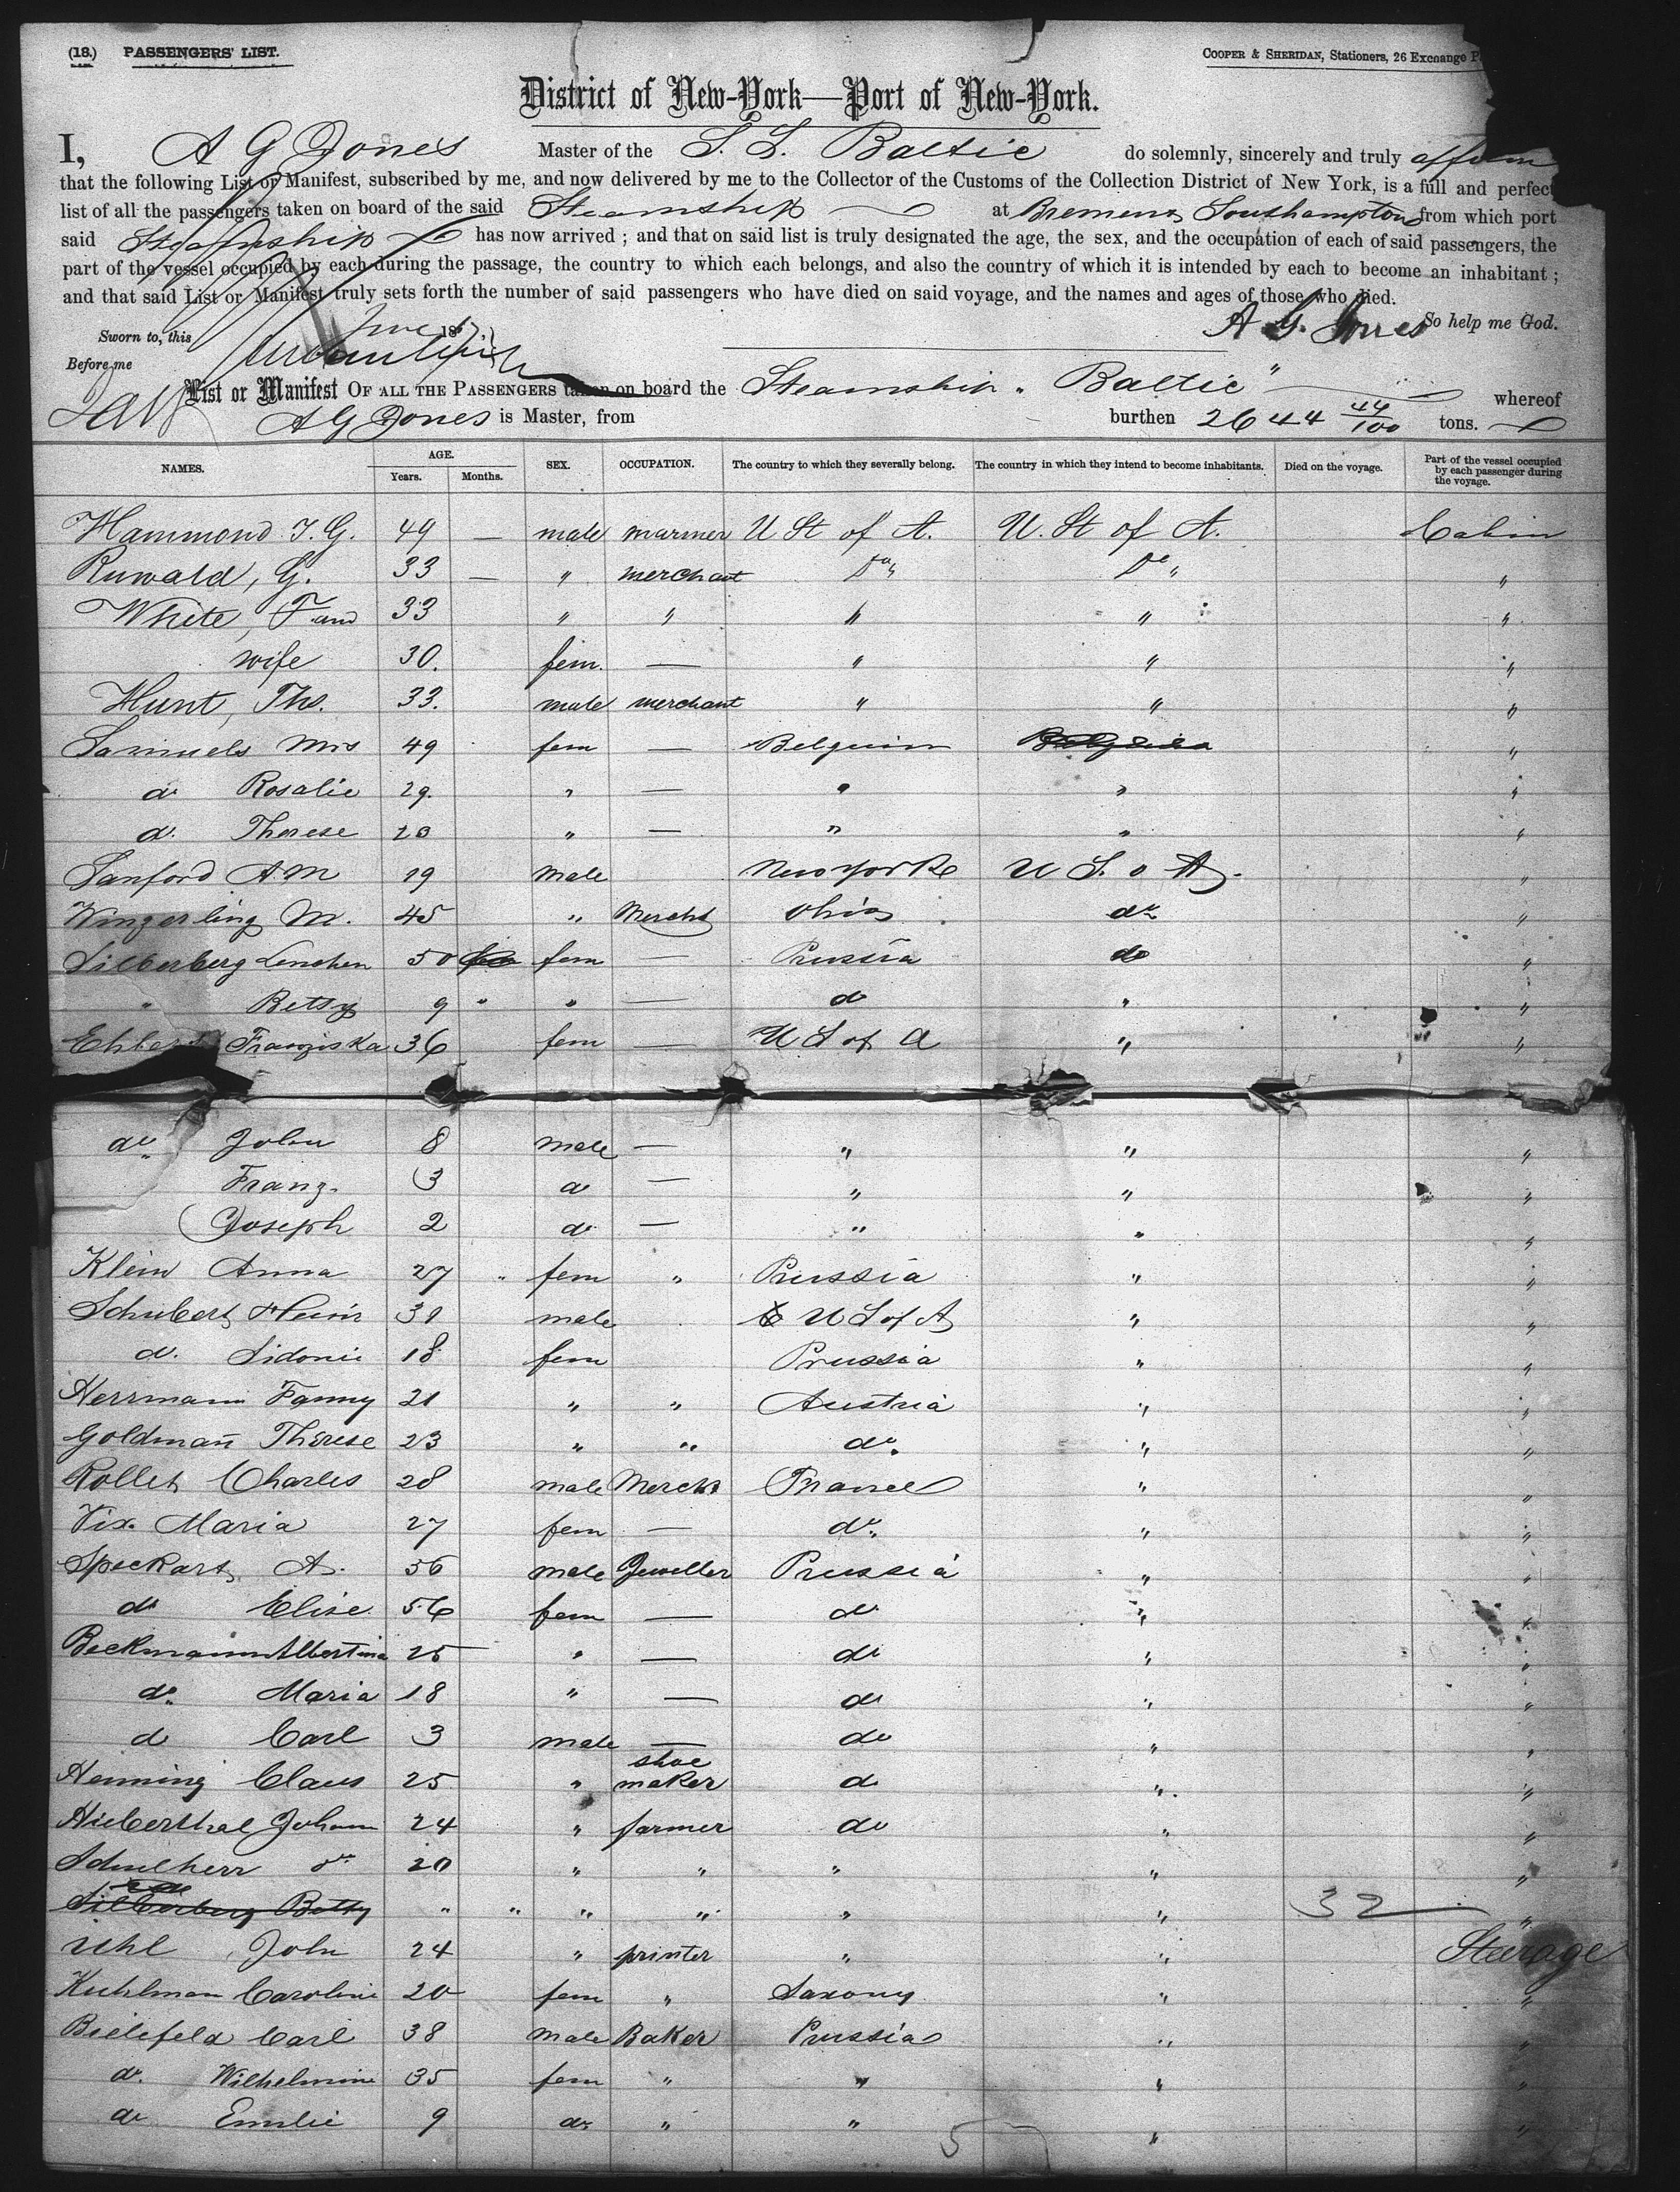 (18.) PASSENGERS' LIST. COOPER & SHERIDAN, Stationers, 26 Exchange
District of New-York—Port of New-York.
I, A G Jones Master of the S. S. Baltic do solemnly, sincerely and truly affirm
that the following List or Manifest, subscribed by me, and now delivered by me to the Collector of the Customs of the Collection District of New York, is a full and perfect
list of all the passengers taken on board of the said Steamship at Bremen & Southampton from which port
said Steamship has now arrived ; and that on said list is truly designated the age, the sex, and the occupation of each of said passengers, the
part of the vessel occupied by each during the passage, the country to which each belongs, and also the country of which it is intended by each to become an inhabitant ;
and that said List or Manifest truly sets forth the number of said passengers who have died on said voyage, and the names and ages of those who died.
Sworn to, this June 186 A G. Jones So help me God.
Before me
List or Manifest OF ALL THE PASSENGERS taken on board the Steamship "Baltic" whereof
A G Jones is Master, from burthen 2644 44/100 tons.
NAMES. AGE. Years. Months. SEX. OCCUPATION. The country to which they severally belong. The country in which they intend to become inhabitants. Died on the voyage. Part of the vessel occupied by each passenger during the voyage.
Hammond J. G. 49 — male mariner U St of A. U. St of A. Cabin
Ruwald, G. 33 — " merchant Do " Do " "
White, F and 33 " " " " "
wife 30. fem. — " " "
Hunt, Ths. 33. male merchant " " "
Samuels Mrs 49 fem — Belguim Belguim "
do Rosalie 29. " — " " "
do. Therese 20 " — " " "
Sanford A M 19 male New York U S. o A. "
Wingerling M. 45 " Mercht Ohio do "
Silberberg Lenchen 50 fem — Prussia do "
" Betsy 9 " " — do " "
Franziska 36 fem — U S of A " "
do " John 8 male — " " "
Franz. 3 do — " " "
Joseph 2 do — " " "
Klein Anna 27 " fem " Prussia " "
Schubert Heinr 31 male U S of A " "
do. Sidonie 18 fem Prussia " "
Herrmann Fanny 21 " " Austria " "
Goldmañ Therese 23 " " do. " "
Rollet Charles 28 male Mercht France " "
Vix Maria 27 fem — do. " "
Speckart A. 56 male Jeweller Prussia " "
do Elise 56 fem — do " "
Beckmann Albertina 25 " — do " "
do. Maria 18 " — do " "
do Carl 3 male — do " "
Henning Claus 25 " shoe maker do " "
Hieberthal Johann 24 " farmer do " "
Schulherr do 20 " " " " "
Silberberg Betty " " " " " " 32 "
Uhl John 24 " printer " " Steerage
Kuhlman Caroline 20 fem " Saxony " "
Bielefeld Carl 38 male Baker Prussia " "
do. Wilhelmine 35 fem " " " "
do Emilie 9 do " " " "
5